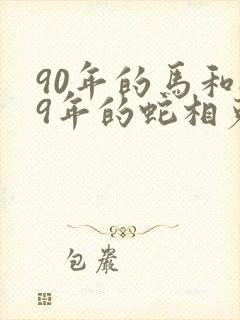 90年的馬和
9年的蛇相
包嚴